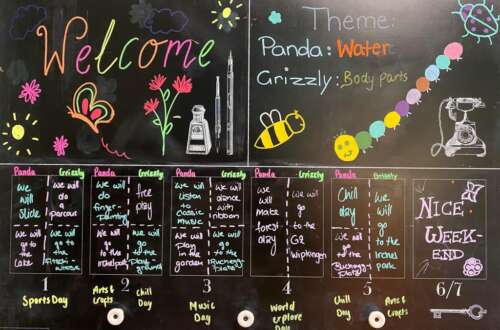 Welcome
Theme:
Panda: Water
Grizzly: Body parts
Panda Grizzly
we will slide
we will do a parcour
we will go to the Lake
we will go to the
Panda Grizzly
we will do finger-painting
free play
we will go to the
we will go to the Playground
Panda Grizzly
we will listen to classic music
we will dance with ribbon
we will play in the garden
we will go to the
Panda Grizzly
we will make forest day
we will go to the GZ Wipkingen
Panda Grizzly
Chill day
we will go to the
we will go to the Irchel park
NICE
WEEK-
END
1 2 3 4 5 6/7
Sports Day
Arts &
Crafts
Chill
Day
Music
Day
World
explore
Day
Chill
Day
Arts &
Crafts